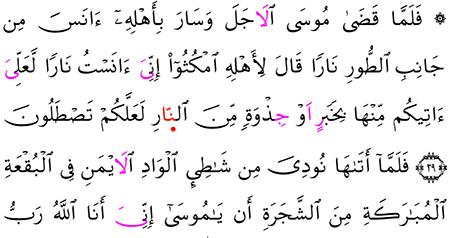 ۞ فَلَمَّا قَضَىٰ مُوسَى اَلَاجَلَ وَسَارَ بِأَهْلِهِۦٓ ءَانَسَ مِن
جَانِبِ اِ۬لطُّورِ نَارًا قَالَ لِأَهْلِهِ اِ۟مْكُثُوٓاْ إِنِّيَ ءَانَسْتُ نَارًا لَّعَلِّيَ
ءَاتِيكُم مِّنْهَا بِخَبَرٍ اَوْ جِذْوَةٍ مِّنَ اَ۬لنّ۪ارِ لَعَلَّكُمْ تَصْطَلُونَ
۝٢٩ فَلَمَّا أَتَىٰهَا نُودِيَ مِن شَٰطِيِٕ اِ۬لْوَادِ اِ۬لَايْمَنِ فِي اِ۬لْبُقْعَةِ
اِ۬لْمُبَٰرَكَةِ مِنَ اَ۬لشَّجَرَةِ أَن يَٰمُوسَىٰٓ إِنِّيَ أَنَا اَ۬للَّهُ رَبُّ